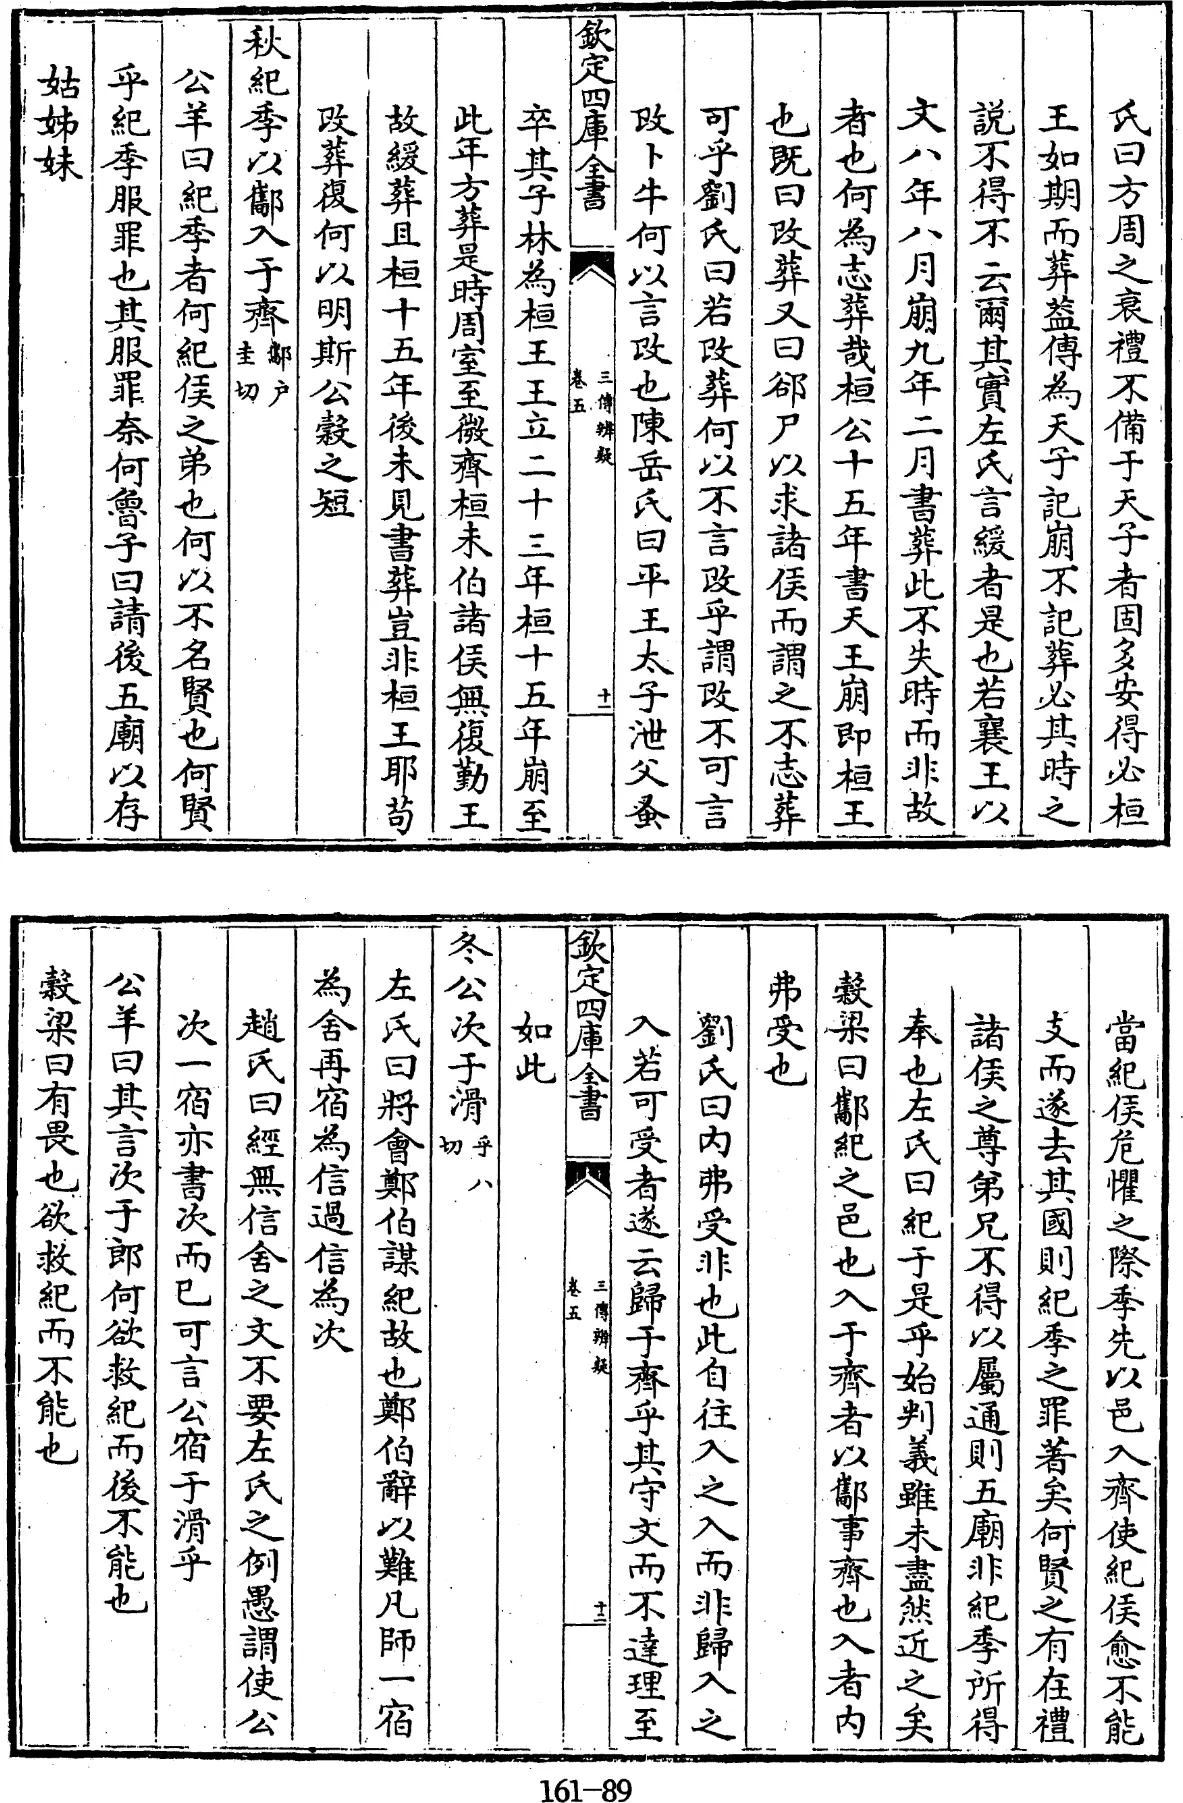 氏曰方周之衰禮不備于天子者固多安得必桓
王如期而葬葢傳為天子記崩不記葬必其時之
説不得不云爾其實左氏言緩者是也若襄王以
文八年八月崩九年二月書葬此不失時而非故
者也何為志葬哉桓公十五年書天王崩即桓王
也既曰改葬又曰郤尸以求諸侯而謂之不志葬
可乎劉氏曰若改葬何以不言改乎謂改不可言
改卜牛何以言改也陳岳氏曰平王太子泄父蚤
欽定四庫全書
三傳辨疑
卷五
十一
卒其子林為桓王王立二十三年桓十五年崩至
此年方葬是時周室至微齊桓未伯諸侯無復勤王
故緩葬且桓十五年後未見書葬豈非桓王耶茍
改葬復何以明斯公穀之短
秋紀季以酅入于齊酅户圭切
公羊曰紀季者何紀侯之弟也何以不名賢也何賢
乎紀季服罪也其服罪奈何魯子曰請後五廟以存
姑姊妹
當紀侯危懼之際季先以邑入齊使紀侯愈不能
支而遂去其國則紀季之罪著矣何賢之有在禮
諸侯之尊弟兄不得以屬通則五廟非紀季所得
奉也左氏曰紀于是乎始判義雖未盡然近之矣
穀梁曰酅紀之邑也入于齊者以酅事齊也入者内
弗受也
劉氏曰内弗受非也此自往入之入而非歸入之
入若可受者遂云歸于齊乎其守文而不達理至
欽定四庫全書
三傳辨疑
卷五
十二
如此
冬公次于滑乎八切
左氏曰將會鄭伯謀紀故也鄭伯辭以難凡師一宿
為舍再宿為信過信為次
趙氏曰經無信舍之文不要左氏之例愚謂使公
次一宿亦書次而已可言公宿于滑乎
公羊曰其言次于郎何欲救紀而後不能也
穀梁曰有畏也欲救紀而不能也
161-89